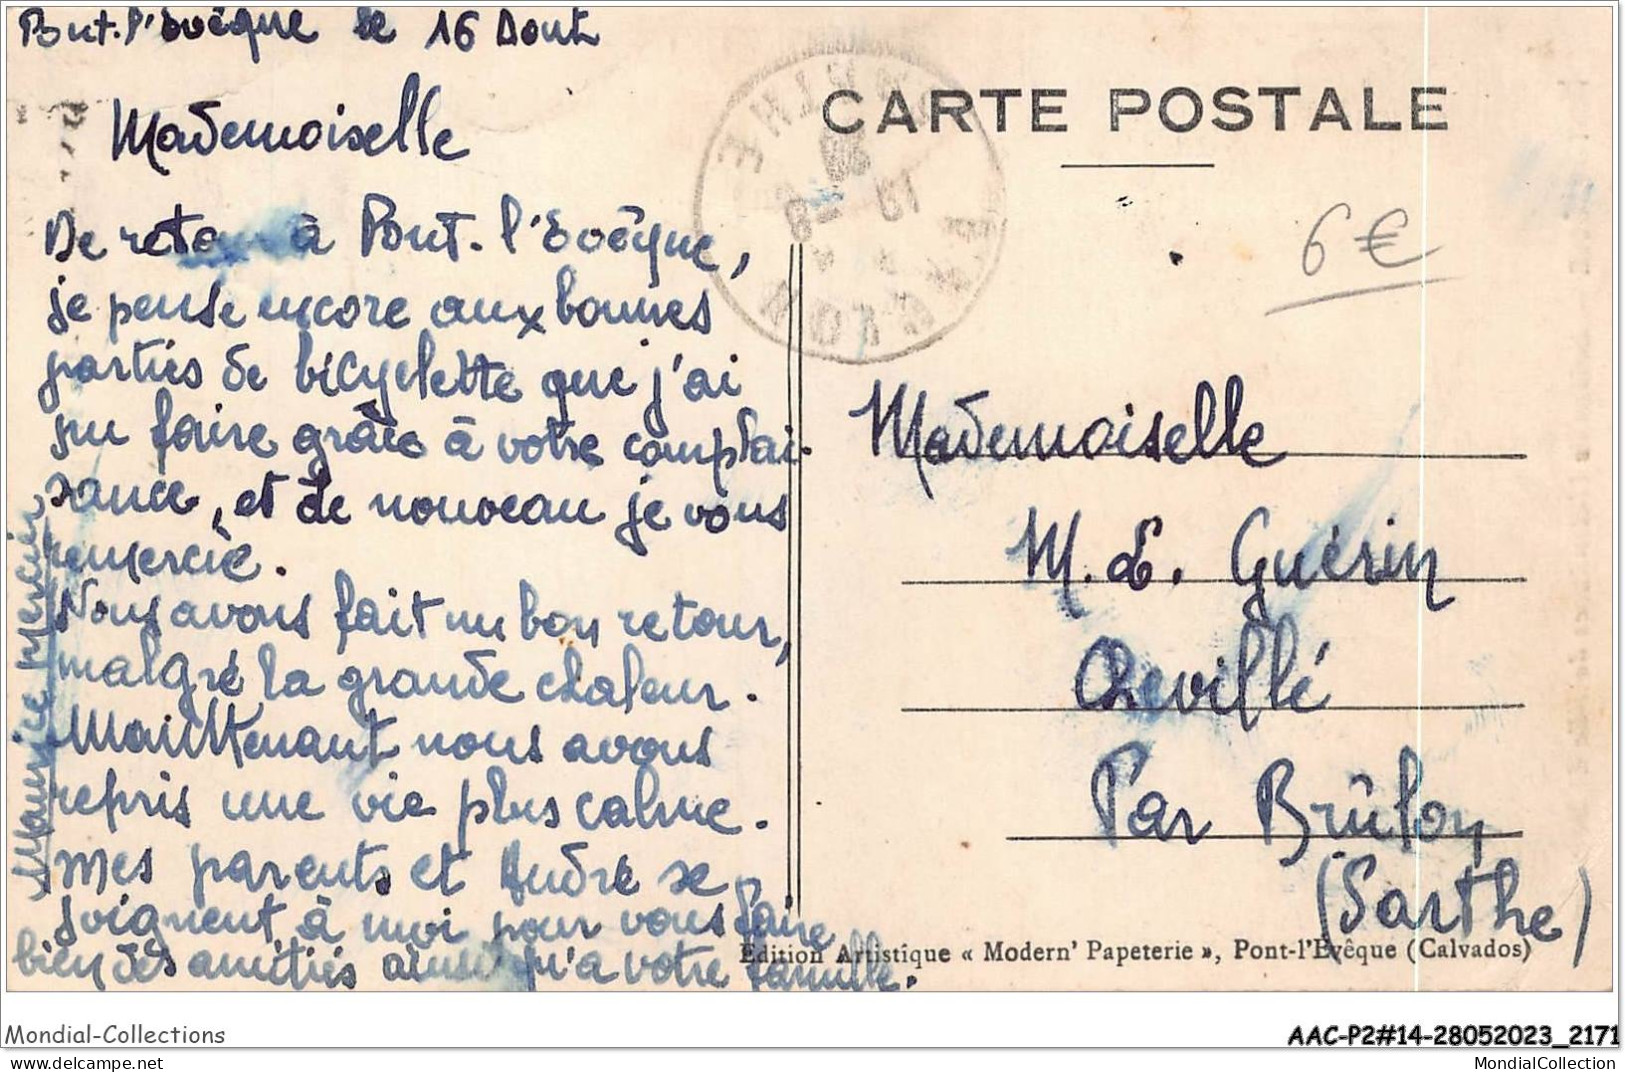 Pont-l'Evêque le 16 Aout
Mademoiselle
De retour à Pont-l'Evêque,
je pense encore aux bonnes
parties de bicyclette que j'ai
pu faire grâce à votre complai-
sance, et de nouveau je vous
remercie.
Nous avons fait un bon retour,
malgré la grande chaleur.
Maintenant nous avons
repris une vie plus calme.
Mes parents et André se
joignent à moi pour vous faire
bien des amitiés ainsi qu'a votre famille.
Maurice Mercier
CARTE POSTALE
BRULON
SARTHE
6€
Mademoiselle
M. L. Guérin
Chevillé
Par Brûlon
(Sarthe)
Edition Artistique « Modern' Papeterie », Pont-l'Evêque (Calvados)
Mondial-Collections
AAC-P2#14-28052023_2171
delcampe.net
MondialCollection